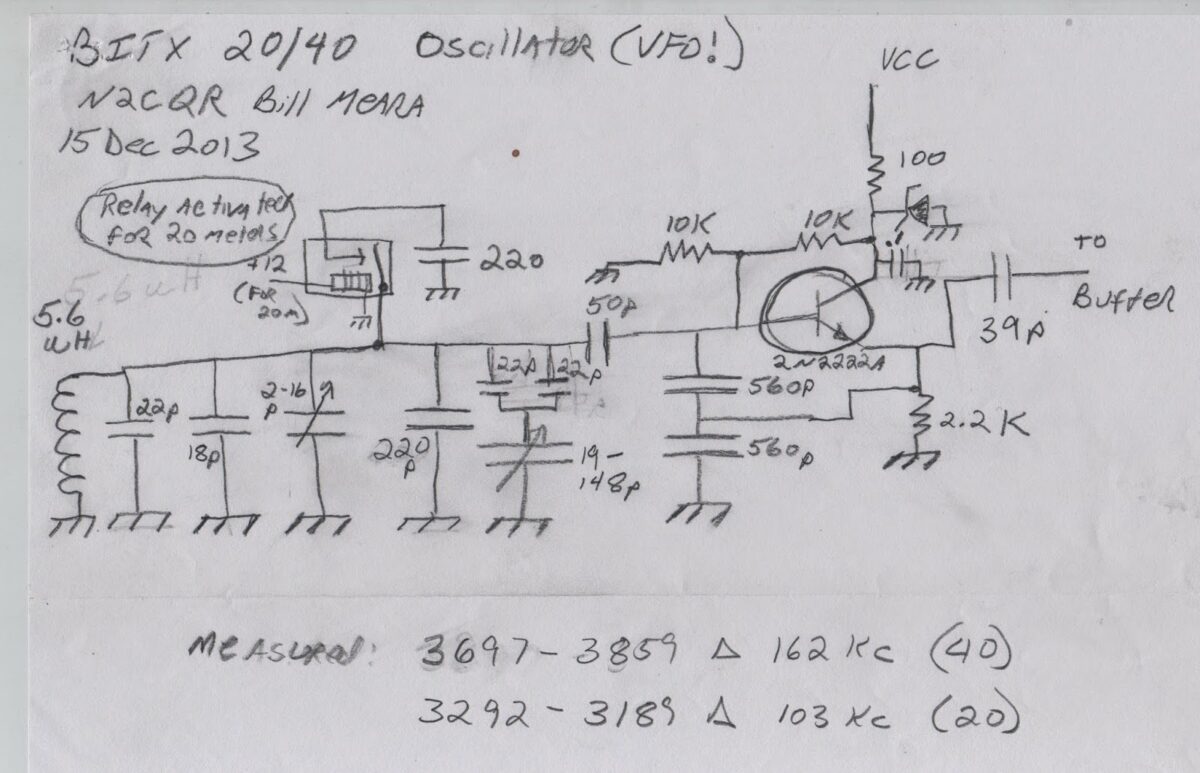 BITX 20/40 Oscillator (VFO!)
N2CQR Bill Meara
15 Dec 2013
VCC
100
Relay Activated
for 20 meters
+12
(for
20m)
220
10K
10K
.1
to
Buffer
39p
5.6 uH
5.6
uH
50p
2N2222A
22p
18p
2-16
p
220
p
22p
22p
19-
148p
560p
560p
2.2K
Measured: 3697 - 3859 Δ 162 Kc (40)
3292 - 3189 Δ 103 Kc (20)